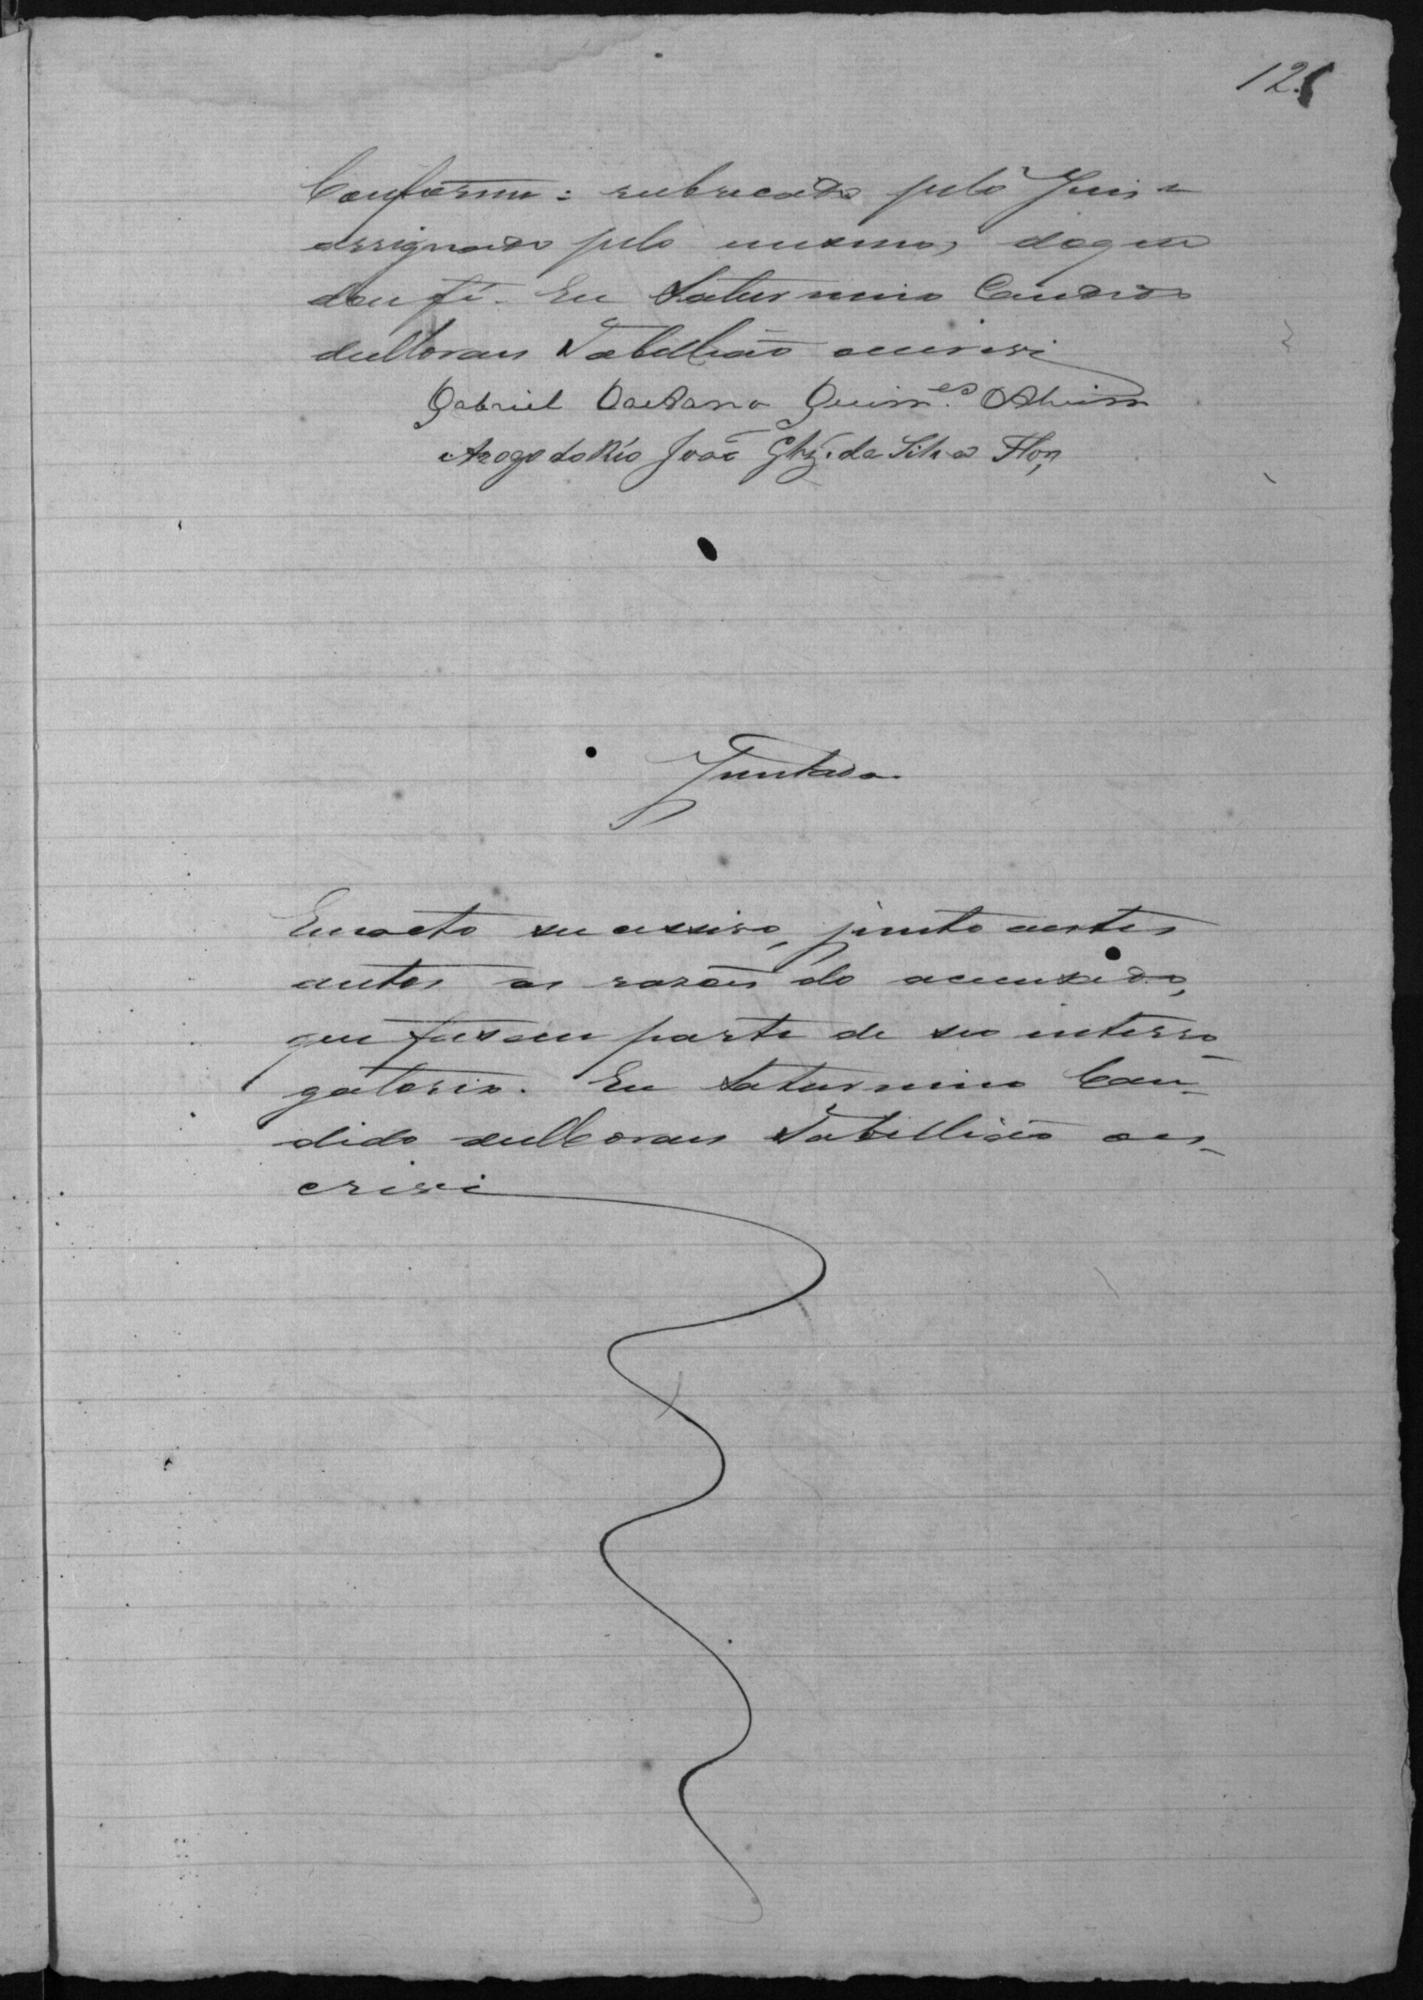 125
Conforme: rubricado pelo Juis e
assignado pelo mesmo, doque
dou fé. Eu Saturnino Candido
de Moraes Tabellião escrevi
Gabriel Caetano Guim.es Alvim
Arogo do Réo João da Silva Flor,
Juntada
Em acto sucessivo, junto aestes
autos as rasões do accusado,
que fasem parte de seo interro-
gatorio. Eu Saturnino Can-
dido de Moraes Tabellião es-
crivi